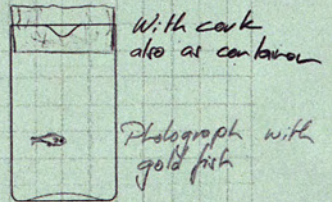 With cork
also as container
Photograph with
gold fish